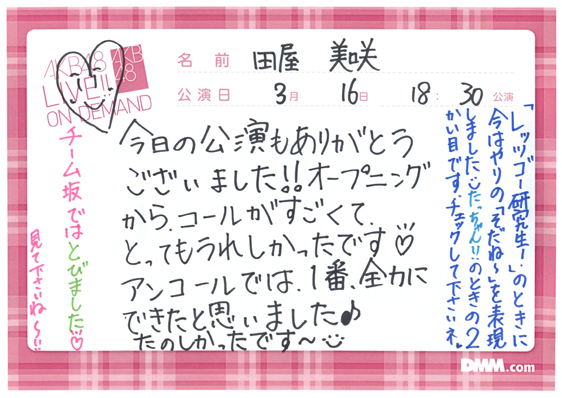 AKB48
LIVE!!
ON DEMAND
AKB
48
名前 田屋 美咲
公演日 3月 16日 18:30 公演
今日の公演もありがとう
ございました!!オープニング
から、コールがすごくて、
とってもうれしかったです♡
アンコールでは、1番、全力に
できたと思いました♪
たのしかったです〜
「レッツゴー研究生!」のときに
今はやりの「そだね〜」を表現
しました。たっちゃん!!のときの2
かい目です。チェックして下さいネ。
チーム坂ではとびました♡
見て下さいね〜!!
DMM.com